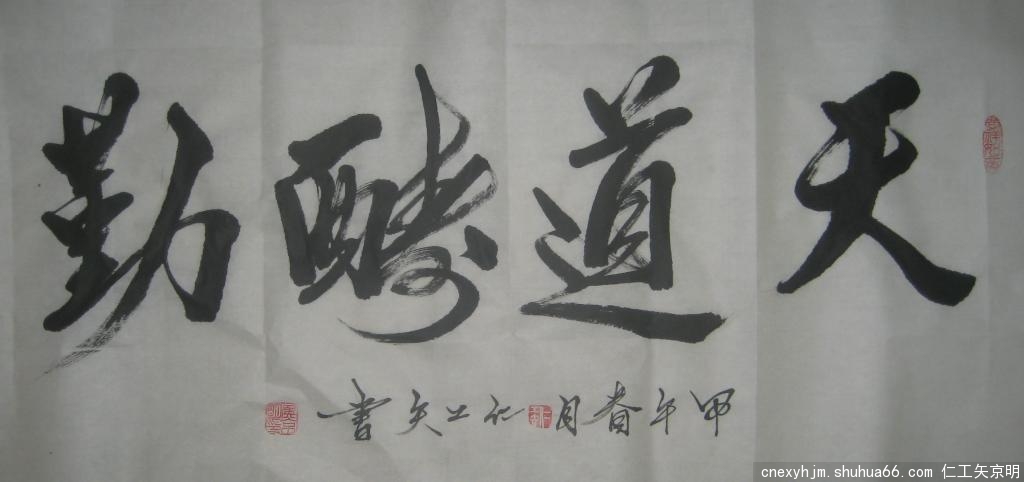 天道酬勤
甲午春月仁工矢書
cnexyhjm.shuhua66.com 仁工矢京明